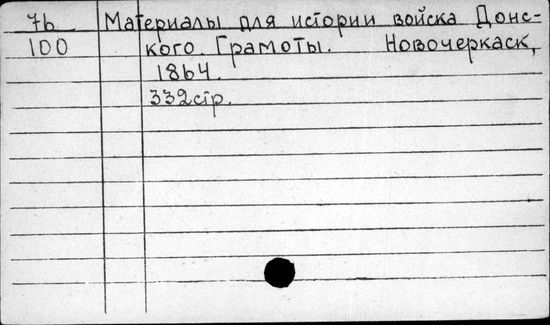 76 Материалы для истории войска Донс-
100 кого. Грамоты. Новочеркаск,
1864.
332стр.